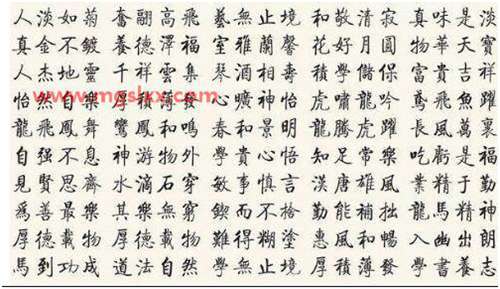 人淡如菊 奮翮高飛 藝無止境 和敬清寂 真味是淡
真金不鍍 養德澤福 室雅蘭馨 花好月圓 物華天寶
人杰地靈 千祥雲集 無酒相壽 積學儲保 富貴吉祥
怡然自樂 薄發 心曠神怡 虎嘯龍吟 鳶飛魚躍
龍飛鳳舞 鸞鳳和鳴 春和景明 龍騰虎躍 長風萬裏
自强不息 神游物外 學貴心悟 知足常樂 吃虧是福
見賢思齊 水滴石穿 敏事慎言 漢唐雄風 業精于勤
爲善最樂 其樂無窮 鍥而不捨 勤能補拙 龍馬精神
厚德載物 厚德載物 難得糊塗 惠風和暢 入幽出朗
馬到功成 道法自然 學無止境 厚積薄發 學書養志
www.mgslxx.com